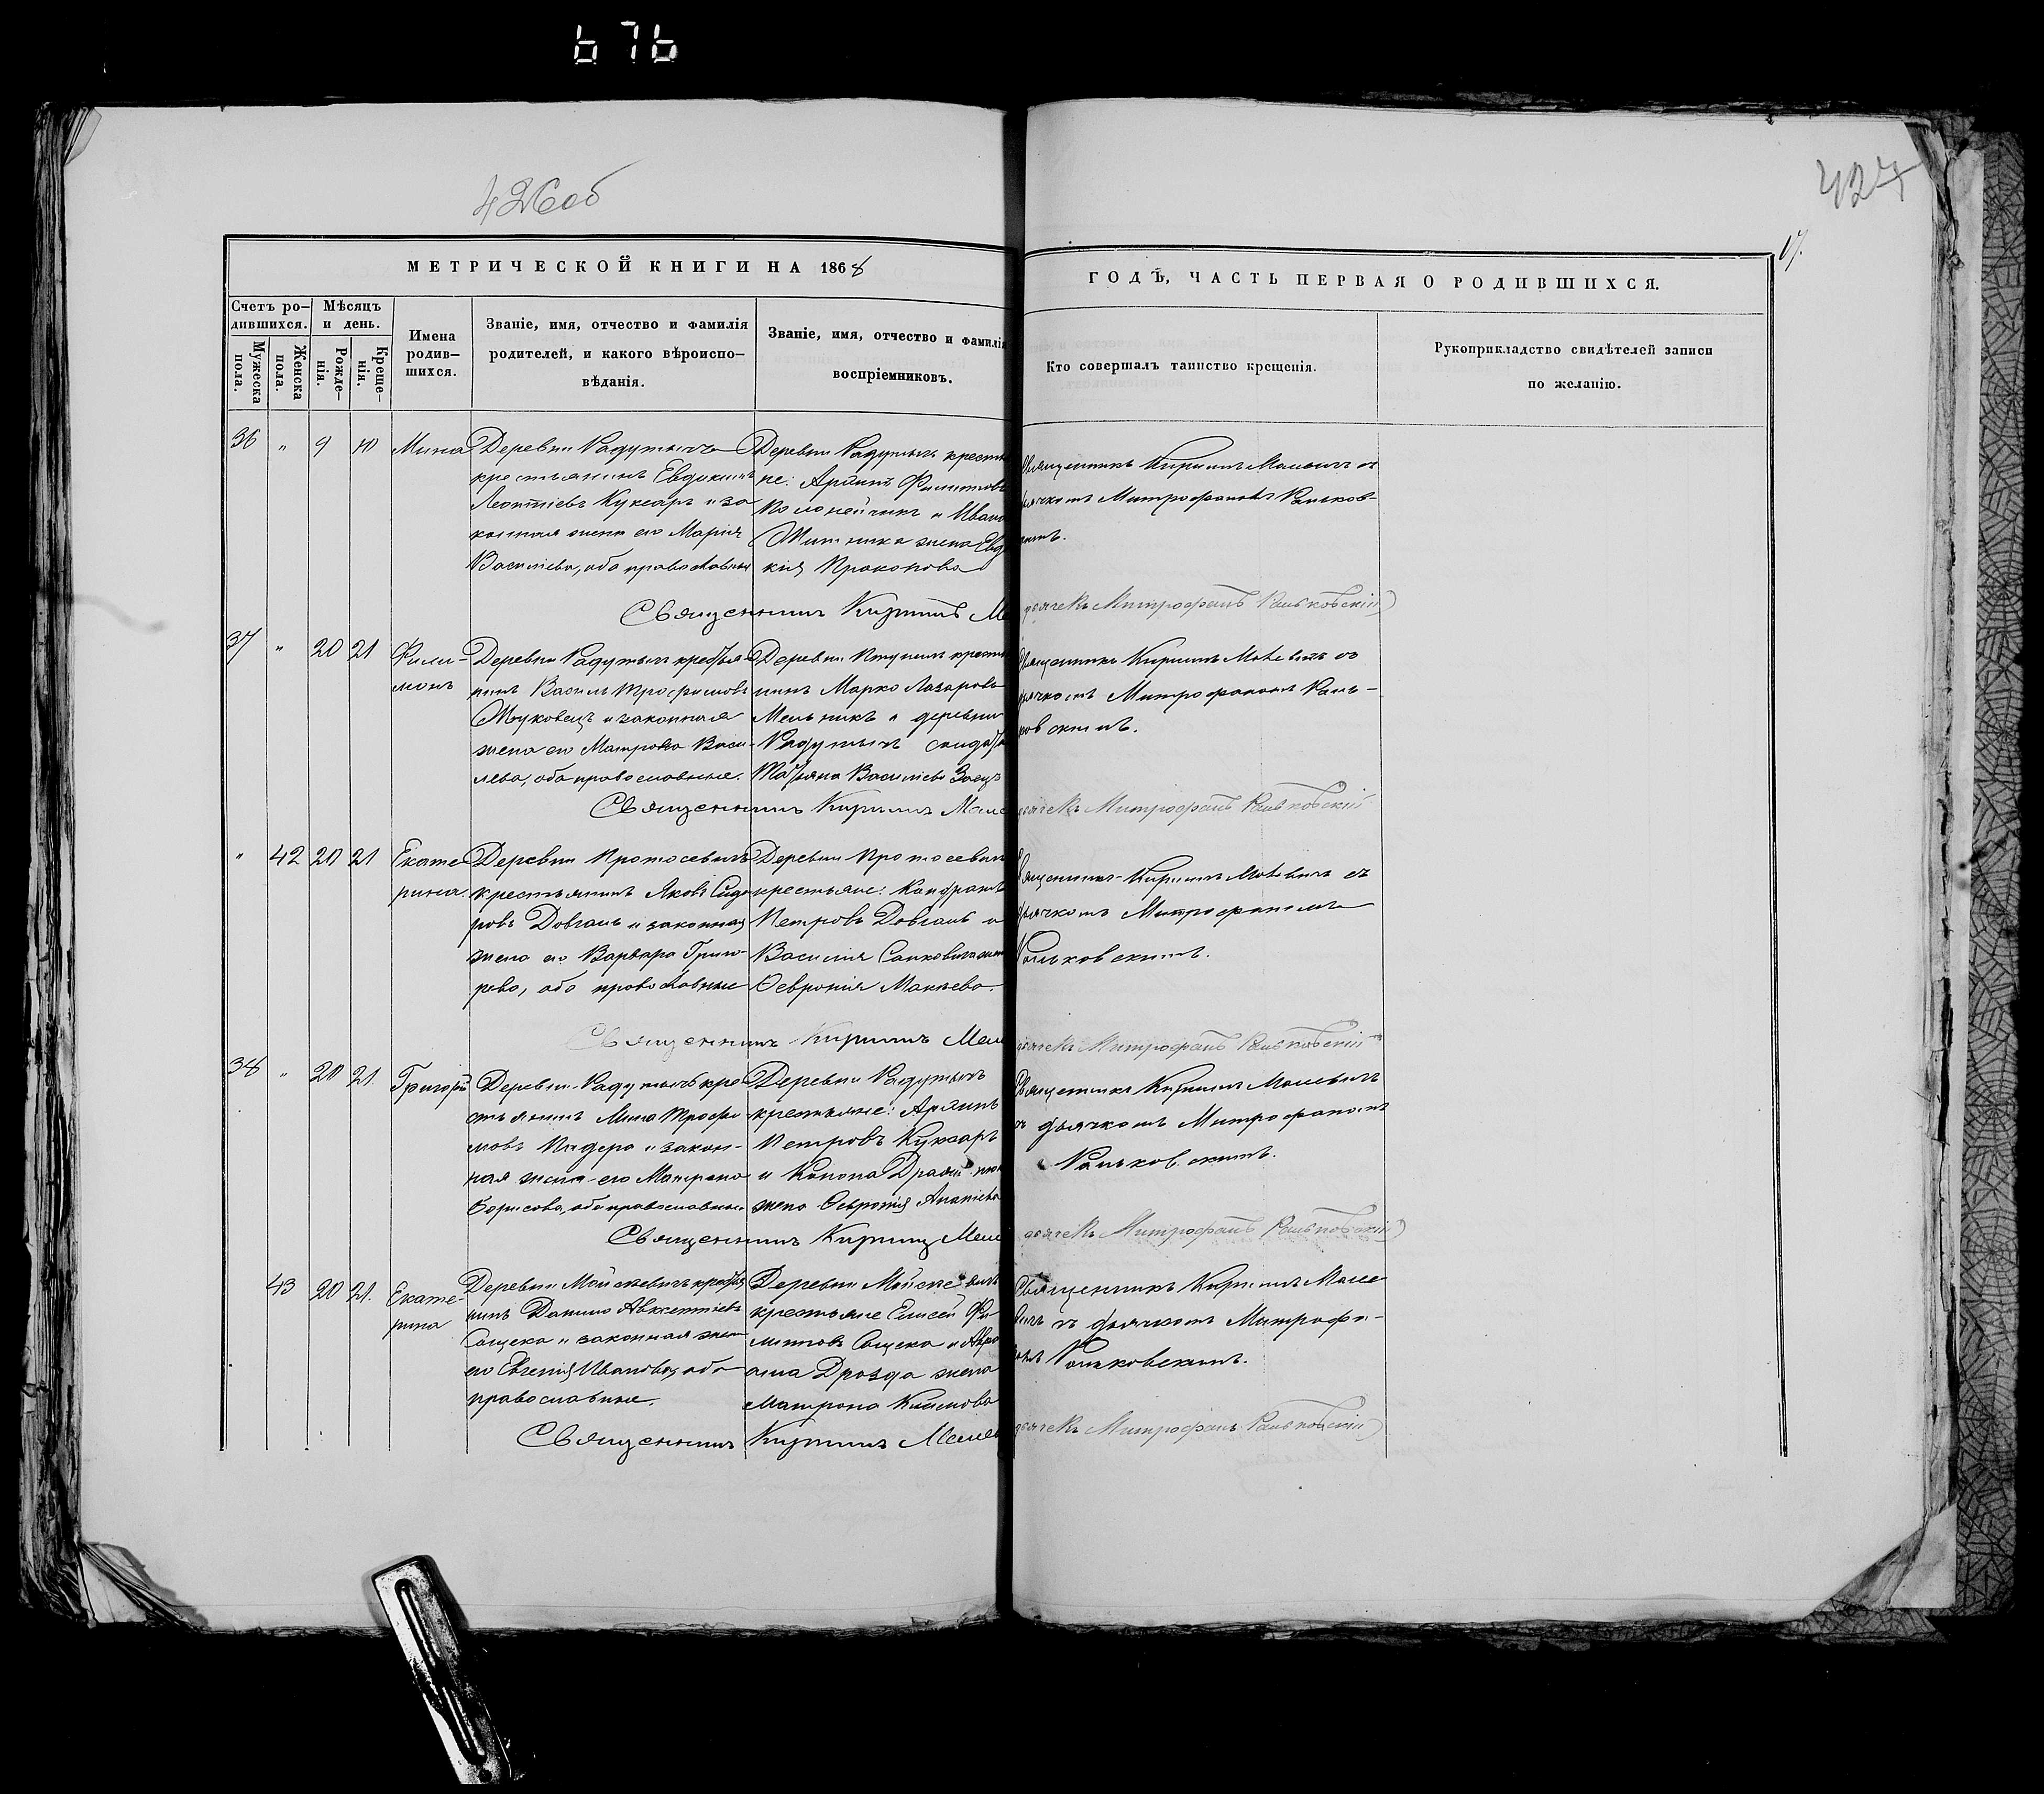 676
426об
427
17.
МЕТРИЧЕСКОЙ КНИГИ НА 1868
ГОДЪ, ЧАСТЬ ПЕРВАЯ О РОДИВШИХСЯ.
Счетъ ро-
дившихся.
Мужеска
пола.
Женска
пола.
Мѣсяцъ
и день.
Рожде-
нія.
Креще-
нія.
Имена
родив-
шихся.
Званіе, имя, отчество и фамилія
родителей, и какого вѣроиспо-
вѣданія.
Званіе, имя, отчество и фамилія
воспріемниковъ.
Кто совершалъ таинство крещенія.
Рукоприкладство свидѣтелей записи
по желанію.
36 " 9 10 Мина
Деревни Радутычъ
крестьянинъ Евдокимъ
Леонтіевъ Куксаръ и за
конная жена его Марія
Василіева, оба православныя
Деревни Радутычъ крестья
не: Филиповъ
и Ивана
жена Евдо
кія Прокопова
Священникъ Кириллъ с
дьячкомъ Митрофаномъ Раньков
скимъ.
Священникъ Кириллъ
дьячекъ Митрофанъ Раньковскій
37 " 20 21 Фили-
монъ
Деревни Радутычъ крестья
нинъ Василь Трофимовъ
Жуковецъ и законная
жена его Матрона Васи-
лева, оба православные.
Деревни крестья
нинъ Марко Лазаровъ
Мельникъ и деревни
Радутычъ
Татьяна Василіева Заецъ
Священникъ Кириллъ съ
дьячкомъ Митрофаномъ Рань-
ковскимъ.
Священникъ Кириллъ
дьячекъ Митрофанъ Раньковскій
" 42 20 21 Екате
рина.
Деревни Протосевичъ
крестьянинъ Яковъ Сидо
ровъ Довгаль и законная
жена его Варвара Григо-
рева, оба православные
Деревни Протосевичъ
крестьяне: Кондратъ
Петровъ Довгаль и
Василія жена
Февронія
Священникъ Кириллъ съ
дьячкомъ Митрофаномъ
Раньковскимъ.
Священникъ Кириллъ
дьячекъ Митрофанъ Раньковскій
38 " 20 21 Григорій
Деревни Радутычъ кре
стьянинъ Мина Трофи
мовъ и закон-
ная жена его Матрона
Борисова, оба православные
Деревни Радутычъ
крестьяне:
Петровъ Куксаръ
и Конона
жена Февронія Ананіева
Священникъ Кириллъ
съ дьячкомъ Митрофаномъ
Раньковскимъ.
Священникъ Кириллъ
дьячекъ Митрофанъ Раньковскій
43 20 21. Екате-
рина
Деревни Мойсеевичъ крестья
нинъ Данило Авксентіевъ
Сащеко и законная жена
его Евгенія Иванова, оба
православные.
Деревни Мойсеевичъ
крестьяне Елисей Фи
липовъ Сащеко и Авра
ама Дрозда жена
Матрона Климова
Священникъ Кириллъ
съ дьячкомъ Митрофа-
номъ Раньковскимъ.
Священникъ Кириллъ
дьячекъ Митрофанъ Раньковскій